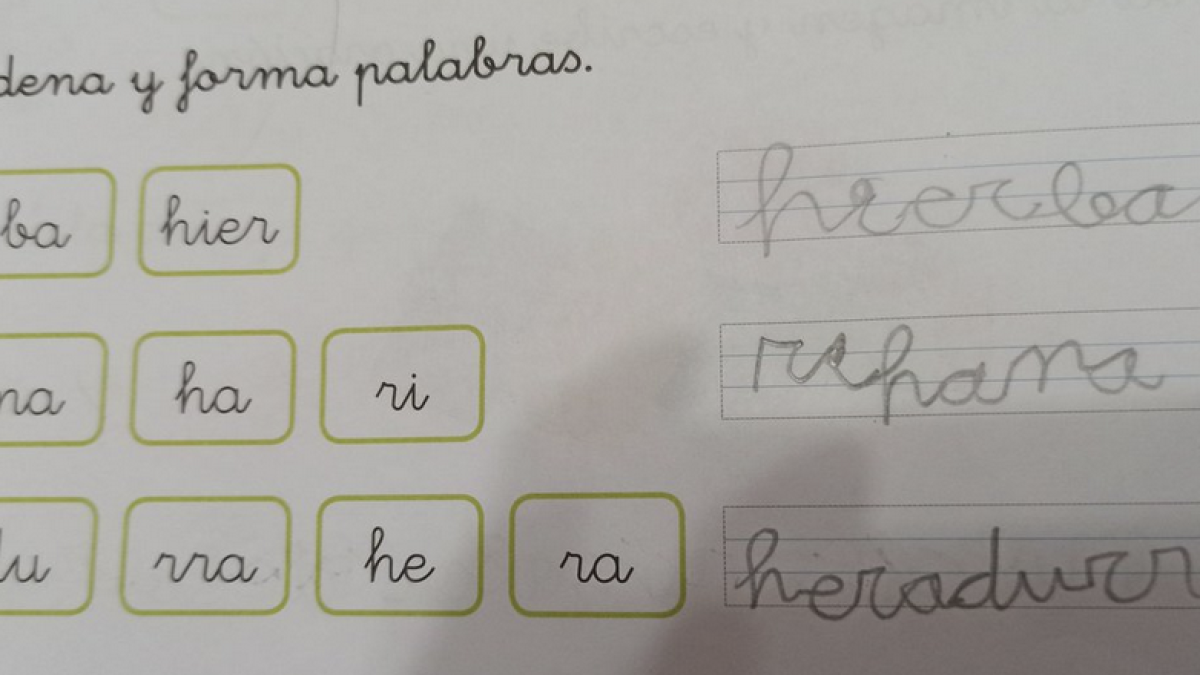 dena y forma palabras.
ba hier hierba
na ha ri rihana
du rra he ra heradurr